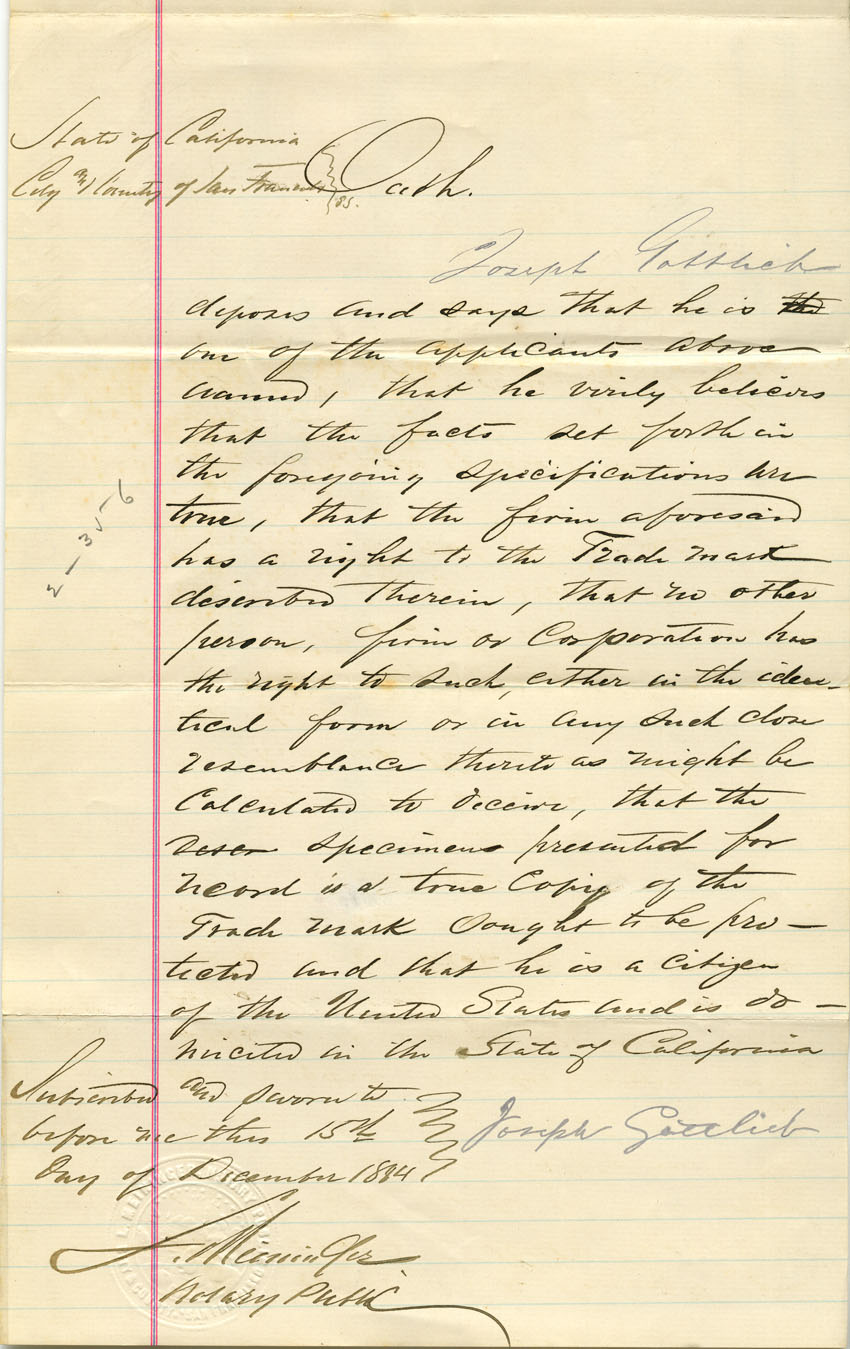 State of California
City and County of San Francisco } ss. Oath.
Joseph Gottlieb
deposes and says that he is the
one of the applicants above
named, that he virily believes
that the facts set forth in
the foregoing specifications are
true, that the firm aforesaid
has a right to the Trade mark
described therein, that no other
person, firm or Corporation has
the right to such, either in the iden-
tical form or in any such close
resemblance thereto as might be
Calculated to deceive, that the
specimens presented for
record is a true Copy of the
Trade mark Sought to be pro-
tected and that he is a citizen
of the United States and is do-
miciled in the State of California
Subscribed and sworn to
before me this 15th } Joseph Gottlieb
Day of December 1884
Notary Public
2-35-6